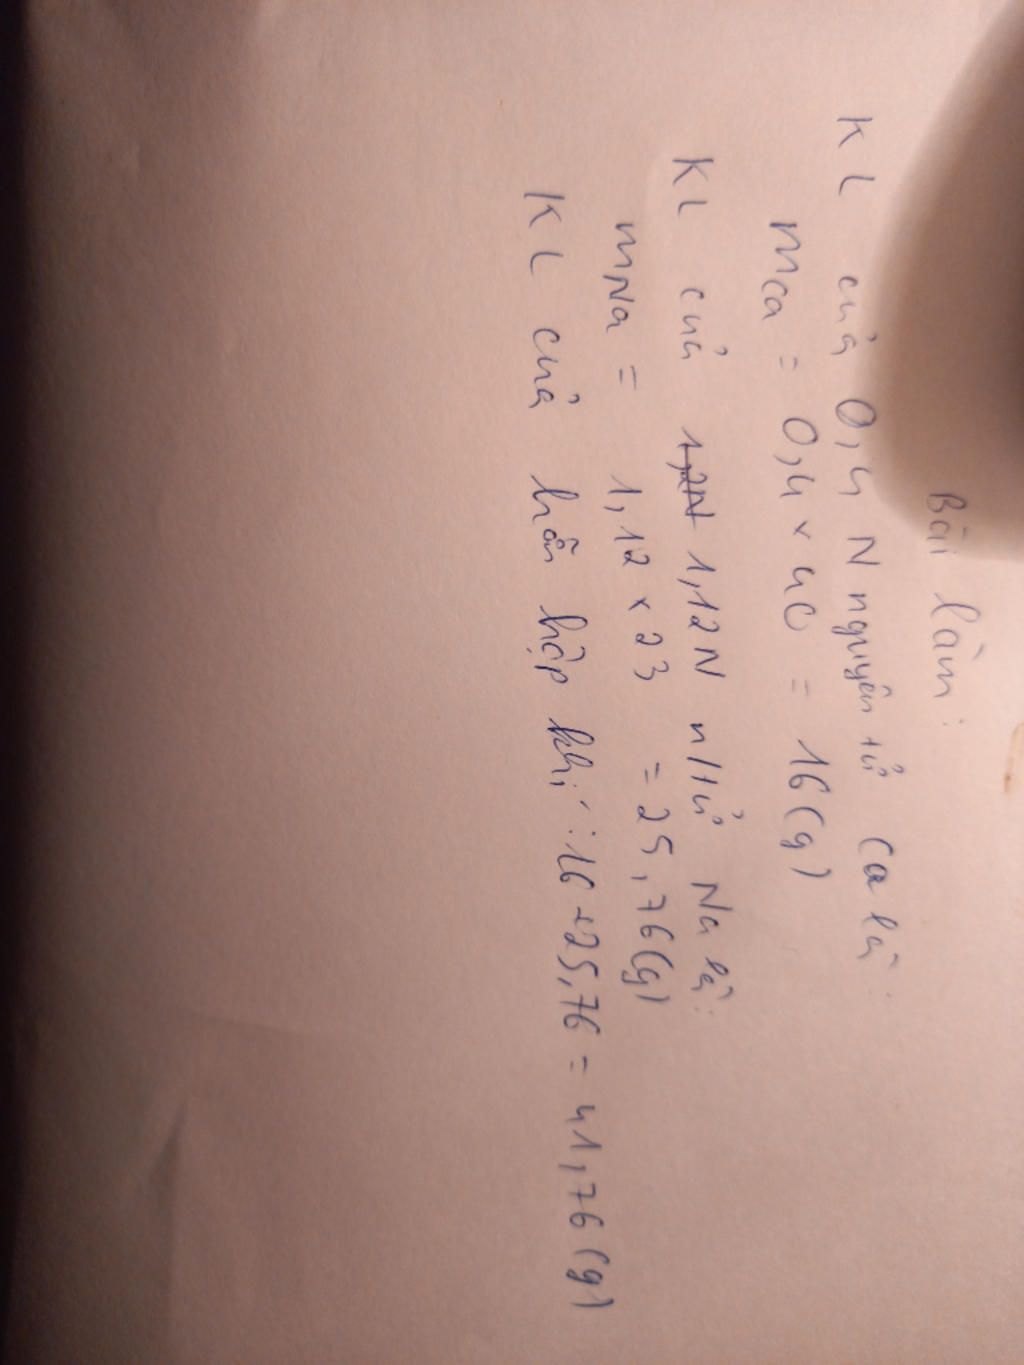 Bài làm:
KL của 0,4 N nguyên tử Ca là:
mCa = 0,4 x 40 = 16(g)
KL của 1,2N 1,12N n/tử Na là:
mNa = 1,12 x 23 = 25,76(g)
KL của hỗn hợp khí: 16 + 25,76 = 41,76(g)